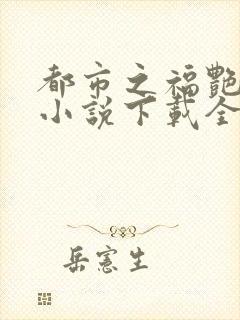 都市之福艷
小說下載全
岳憲生